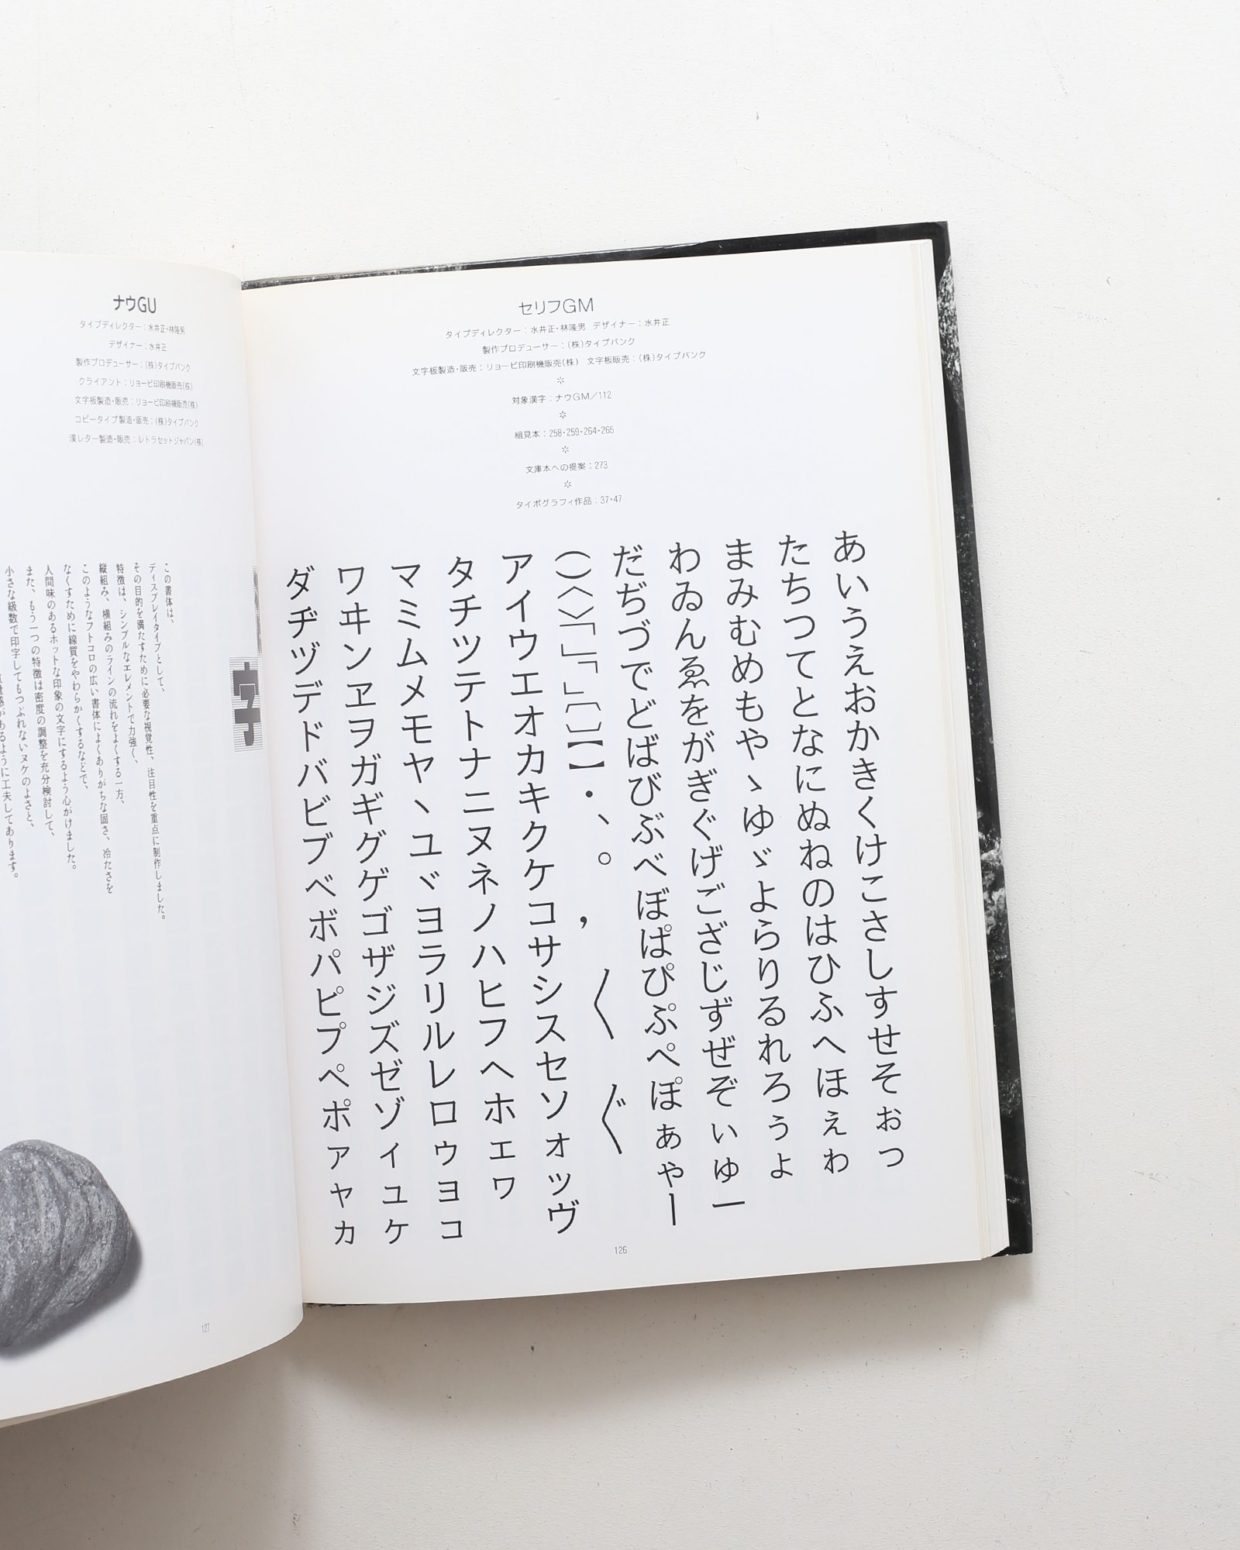 セリフGM
タイプディレクター：水井正・林隆男 デザイナー：水井正
製作プロデューサー：(株)タイプバンク
文字板製造・販売：リョービ印刷機販売(株) 文字板販売：(株)タイプバンク
☆
対象漢字：ナウGM／112
☆
組見本：258・259・264・265
☆
文庫本への提案：273
☆
タイポグラフィ作品：37・47
あいうえおかきくけこさしすせそぉっ
たちつてとなにぬねのはひふへほぇゎ
まみむめもやゝゆゞよらりるれろぅょ
わゐんゑをがぎぐげござじずぜぞぃゅー
だぢづでどばびぶべぼぱぴぷぺぽぁゃー
()〈〉「」『』〔〕【】・、。，〳〵〴〵
アイウエオカキクケコサシスセソォッヴ
タチツテトナニヌネノハヒフヘホェヮ
マミムメモヤヽユヾヨラリルレロゥョコ
ワヰンヱヲガギグゲゴザジズゼゾィュケ
ダヂヅデドバビブベボパピプペポァャカ
126
ナウGU
タイプディレクター：水井正・林隆男
デザイナー：水井正
製作プロデューサー：(株)タイプバンク
クライアント：リョービ印刷機販売(株)
文字板製造・販売：リョービ印刷機販売(株)
コピータイプ製造・販売：(株)タイプバンク
漢レター製造・販売：レトラセットジャパン(株)
字
この書体は、
ディスプレイタイプとして、
その目的を満たすために必要な視覚性、注目性を重点に制作しました。
特徴は、シンプルなエレメントで力強く、
縦組み、横組みのラインの流れをよくする一方、
このようなフトコロの広い書体によくありがちな固さ、冷たさを
なくすために線質をやわらかくするなどで、
人間味のあるホットな印象の文字にするよう心がけました。
また、もう一つの特徴は密度の調整を充分検討して、
小さな級数で印字してもつぶれないヌケのよさと、
があるように工夫してあります。
127